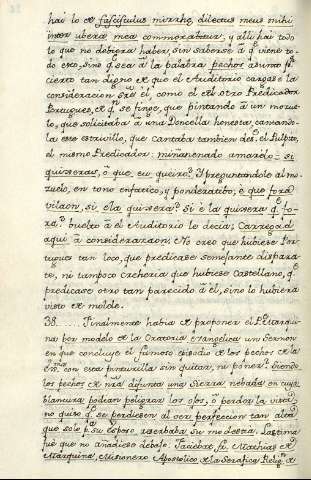 hai lo de fasciculus mirrhę, dilectus meus mihi
inter ubera mea commorabitur, y alli hai todo
lo que no debiera haber, sin saberse à q̃ viene to-
do eso, sino q̃ sea à la palabra pechos asunto pr.
cierto tan digno de que el Auditorio cargase la
consideracion sre. él, como el del otro Predicador
Portugues, de qn. se finge, que pintando à un mozue-
lo, que solicitaba à una Doncella honesta, cantando-
la este estrivillo, que cantaba tambien desde el Pulpito,
el mismo Predicador: miña nenado amarelo = si
quiseras, ò que eu queiro? Y preguntandole al mo-
zuelo, en tono enfatico, y ponderatibo, è que fora
vilaon, si ela quisera? si è la quisera q̃ fo-
ra? buelto à el Auditorio le decia; Carregad
aqui à consideraraon; No creo que hubiese Por-
tugues tan loco, que predicase semejante dispara-
te, ni tampoco creheria que hubiese Castellano, q̃
predicase otro tan parecido à él, sino lo hubiera
visto de molde.
38....... Finalmente habia de proponer el Pe. Marqui-
na por modelo de la Oratoria evangelica un Sermon
en que concluye el famoso episodio de los pechos de la
con esta pinturilla sin quitar, ni poner? viendo
los pechos de nra difunta una Sierra nebada en cuya
blancura podian peligrar los ojos, ò perder la vista
no quiso q̃ se perdiesen al ver perfeccion tan alta
que solo pa. su Esposo, reserbaba su modestia. Lastima
fuè que no añadiese debajo. Fr. Mathias de
Marquina Misionero Apostolico de la Serafica Relign. de